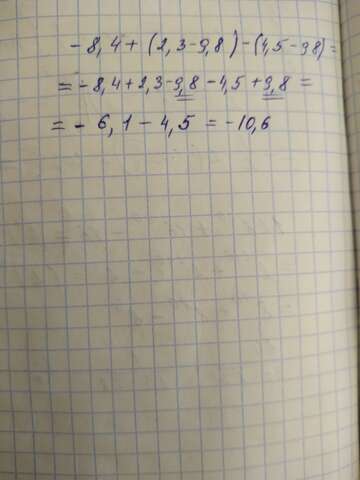 - 8,4 + (2,3 - 9,8) - (4,5 - 9,8) =
= - 8,4 + 2,3 - 9,8 - 4,5 + 9,8 =
= - 6,1 - 4,5 = -10,6